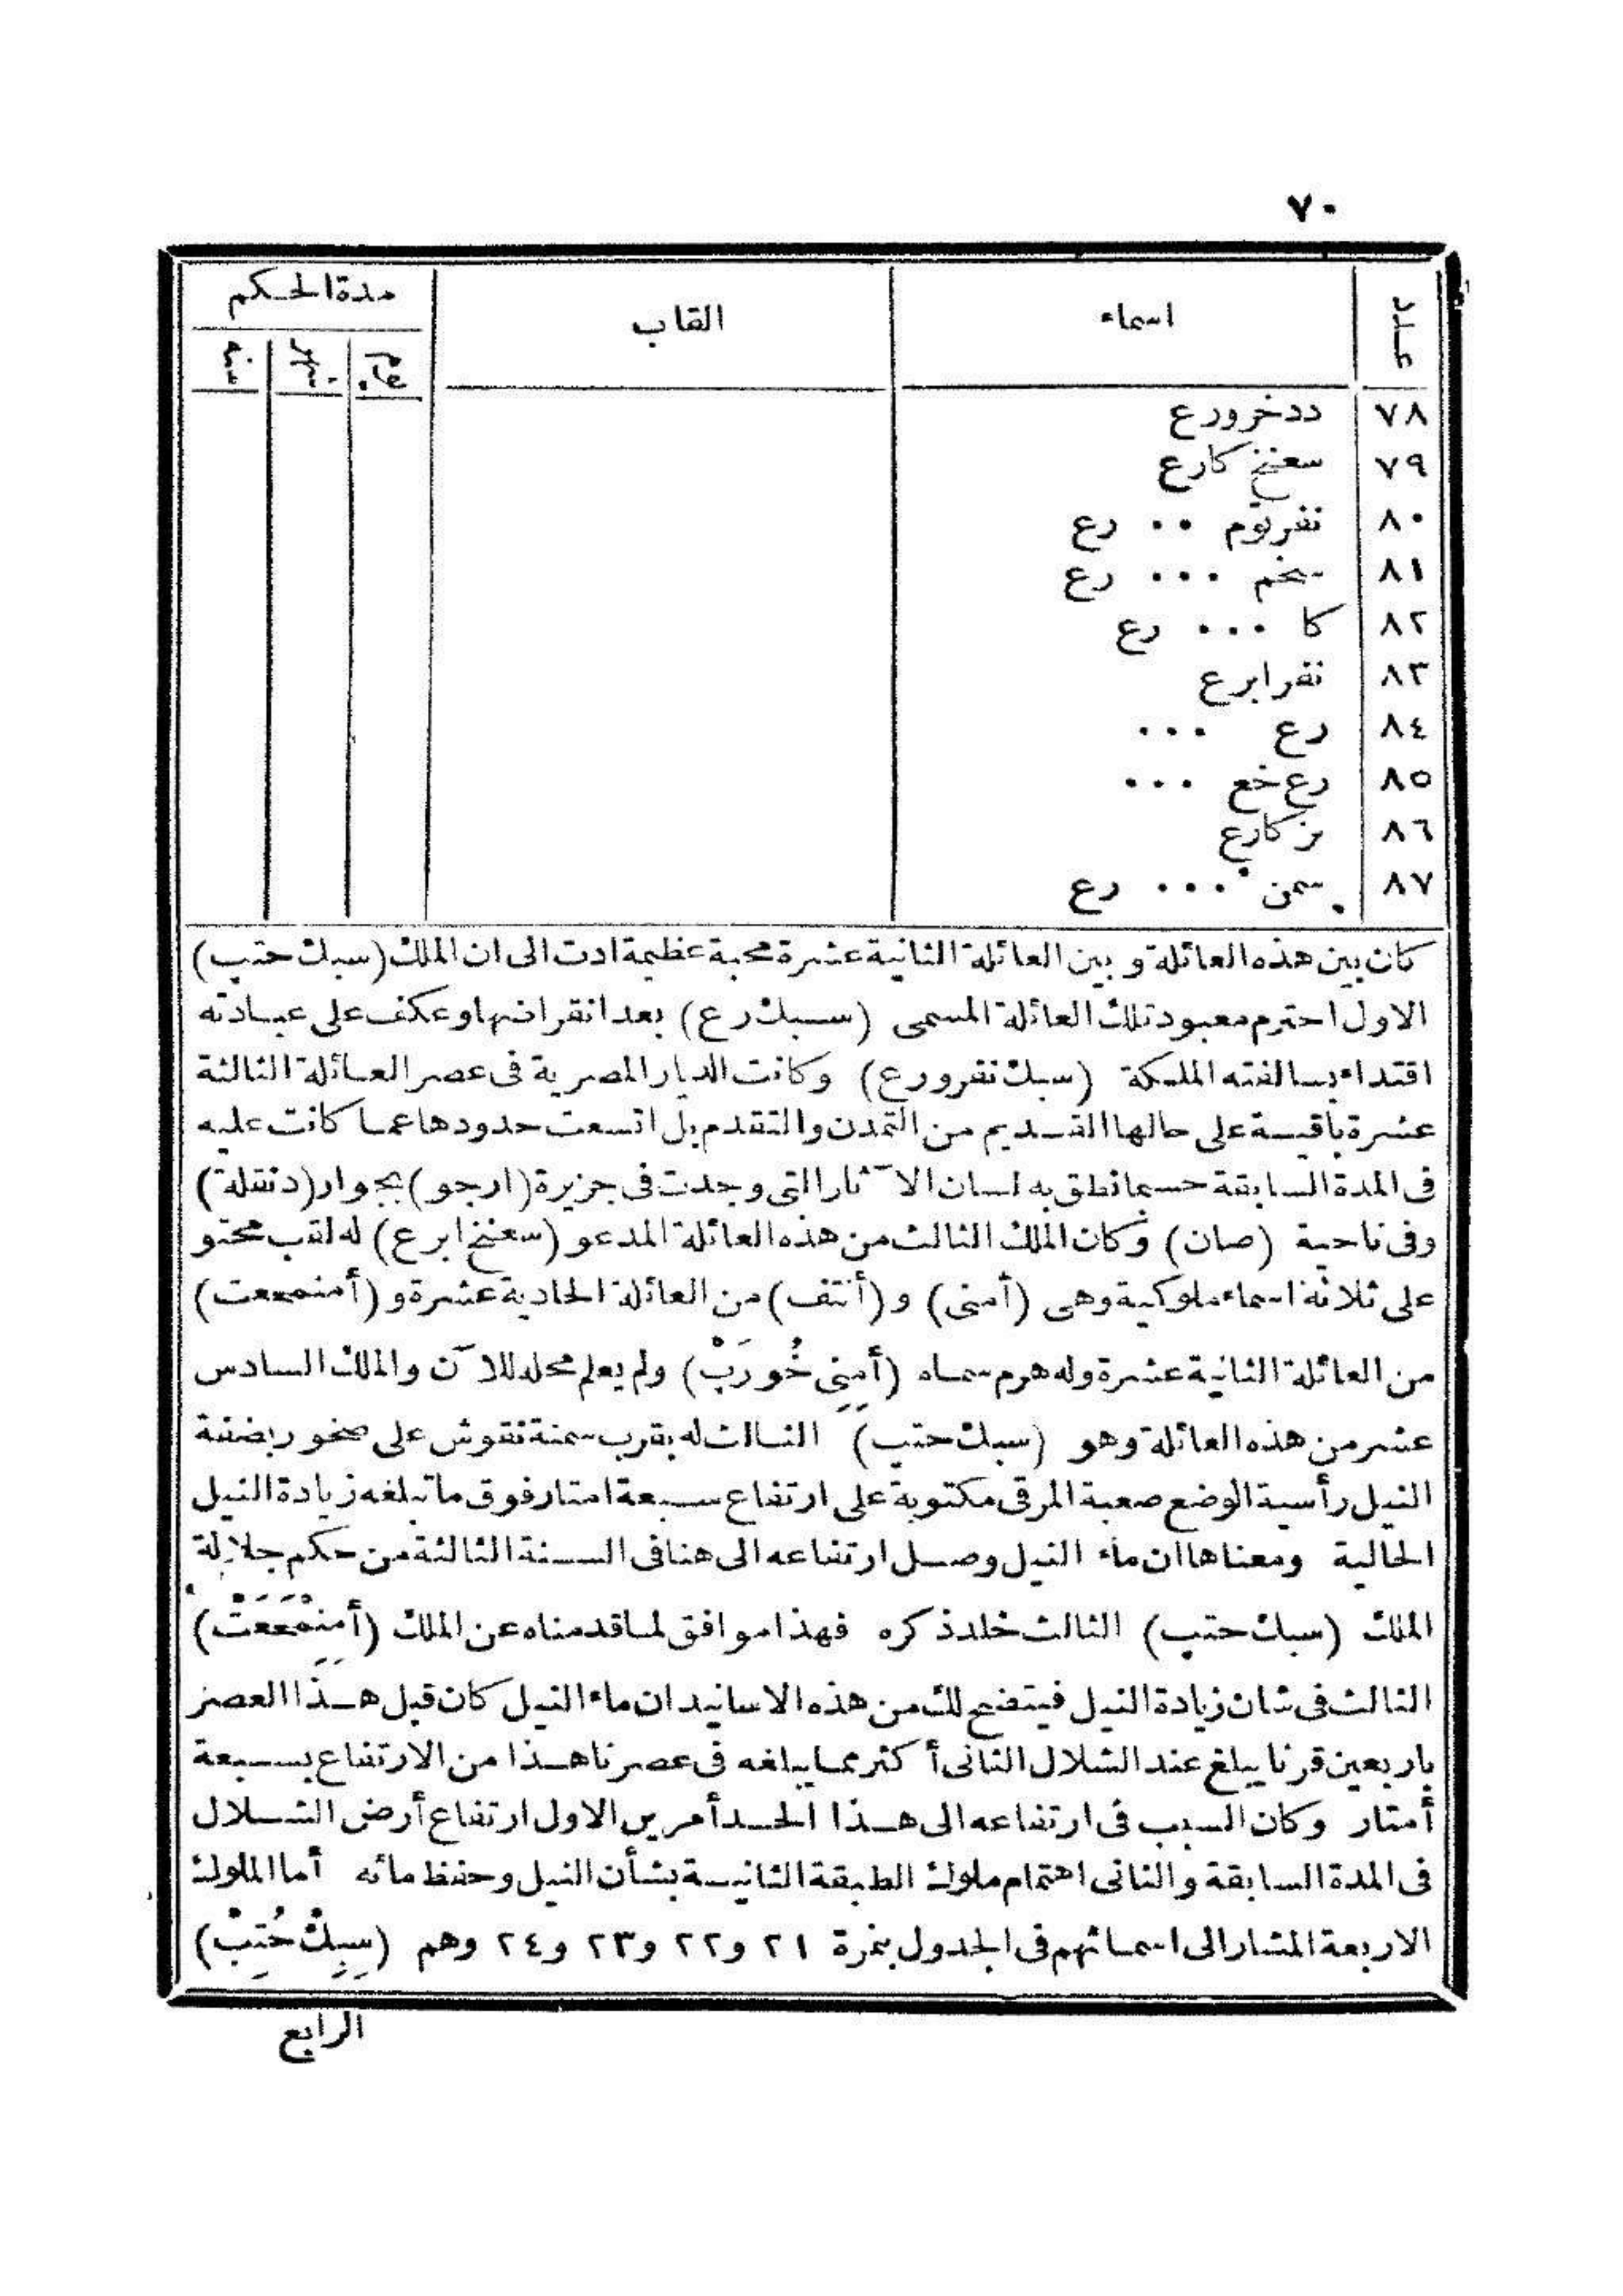 ٧٠
عدد اسماء القاب مدة الحكم
يوم شهر سنة
٧٨ ددخرورع
٧٩ سعنخ كارع
٨٠ نفرتوم ٠٠ رع
٨١ سخم ٠٠٠ رع
٨٢ كا ٠٠٠ رع
٨٣ نفرابرع
٨٤ رع ٠٠٠
٨٥ رع خع ٠٠٠
٨٦ نزكارع
٨٧ سمن ٠٠٠ رع
كان بين هذه العائلة وبين العائلة الثانية عشرة محبة عظيمة ادت الى ان الملك (سبك حتب)
الاول احترم معبود تلك العائلة المسمى (سبك رع) بعد انقراضها وعكف على عبادته
اقتداء بسالفته الملكة (سبك نفرورع) وكانت الديار المصرية فى عصر العائلة الثالثة
عشرة باقية على حالها القديم من التمدن والتقدم بل اتسعت حدودها عما كانت عليه
فى المدة السابقة حسبما نطق به لسان الآثار التى وجدت فى جزيرة (ارجو) بجوار (دنقلة)
وفى ناحية (صان) وكان الملك الثالث من هذه العائلة المدعو (سعنخ ابرع) له لقب محتو
على ثلاثة اسماء ملوكية وهى (أمنى) و (أنتف) من العائلة الحادية عشرة و (أمنمععت)
من العائلة الثانية عشرة وله هرم سماه (أمِنِى خُورَبْ) ولم يعلم محله للآن والملك السادس
عشر من هذه العائلة وهو (سبك حتب) الثالث له بقرب سمنة نقوش على صخور بضفة
النيل رأسية الوضع صعبة المرقى مكتوبة على ارتفاع سبعة امتار فوق ما تبلغه زيادة النيل
الحالية ومعناها ان ماء النيل وصل ارتفاعه الى هنا فى السنة الثالثة من حكم جلالة
الملك (سبك حتب) الثالث خلد ذكره فهذا موافق لما قدمناه عن الملك (أمِنِمْعَعَتْ)
الثالث فى شان زيادة النيل فيتضح لك من هذه الاسانيد ان ماء النيل كان قبل هذا العصر
باربعين قرنا يبلغ عند الشلال الثانى أكثر مما يبلغه فى عصرنا هذا من الارتفاع بسبعة
أمتار وكان السبب فى ارتفاعه الى هذا الحد أمرين الاول ارتفاع أرض الشلال
فى المدة السابقة والثانى اهتمام ملوك الطبقة الثانية بشأن النيل وحفظ مائه أما الملوك
الاربعة المشار الى اسمائهم فى الجدول بنمرة ٢١ و٢٢ و٢٣ و٢٤ وهم (سِبِكْ حُتِبْ)
الرابع